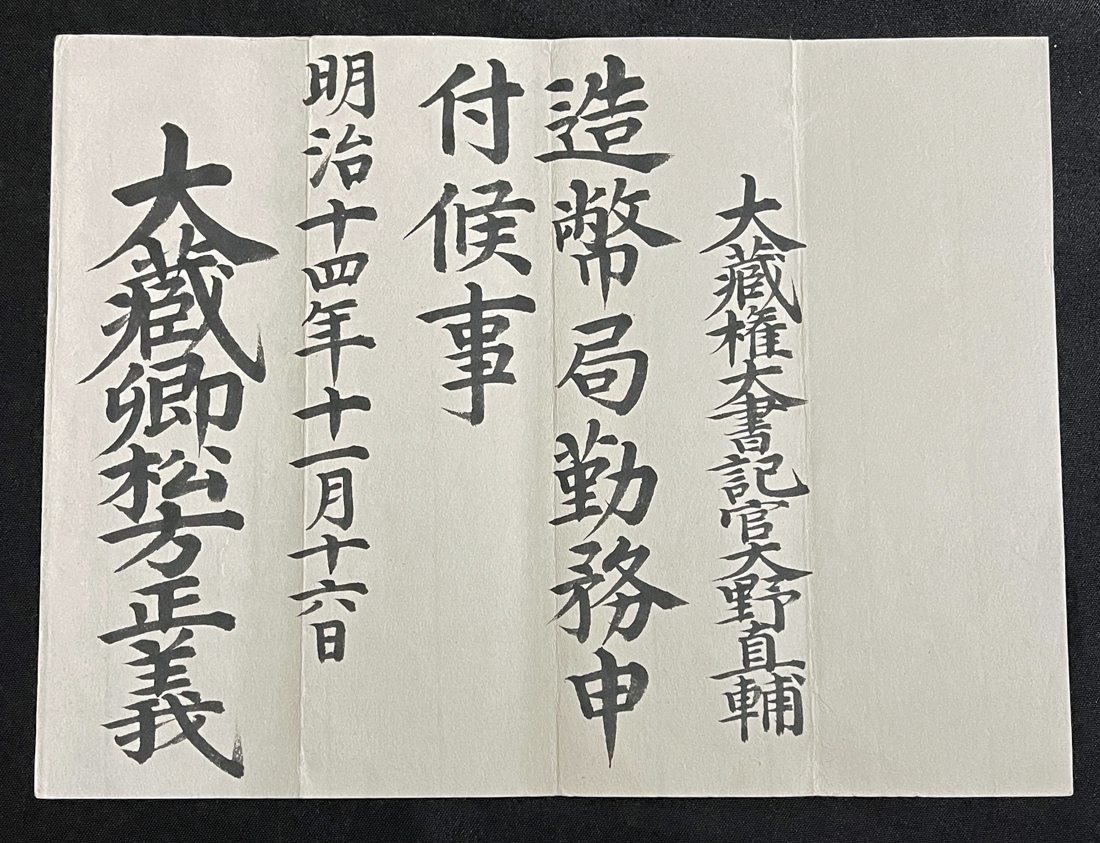 大藏権大書記官大野直輔
造幣局勤務申
付候事
明治十四年十一月十六日
大藏卿松方正義